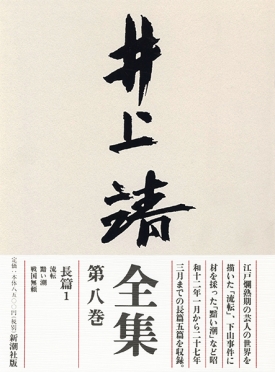 井上靖
全集
第八巻
長篇1
流転
黯い潮
戦国無頼
江戸爛熟期の芸人の世界を
描いた「流転」、下山事件に
材を採った「黯い潮」など昭
和十二年一月から二十七年
三月までの長篇五篇を収録。
定価・本体八五〇〇円(税別)新潮社版